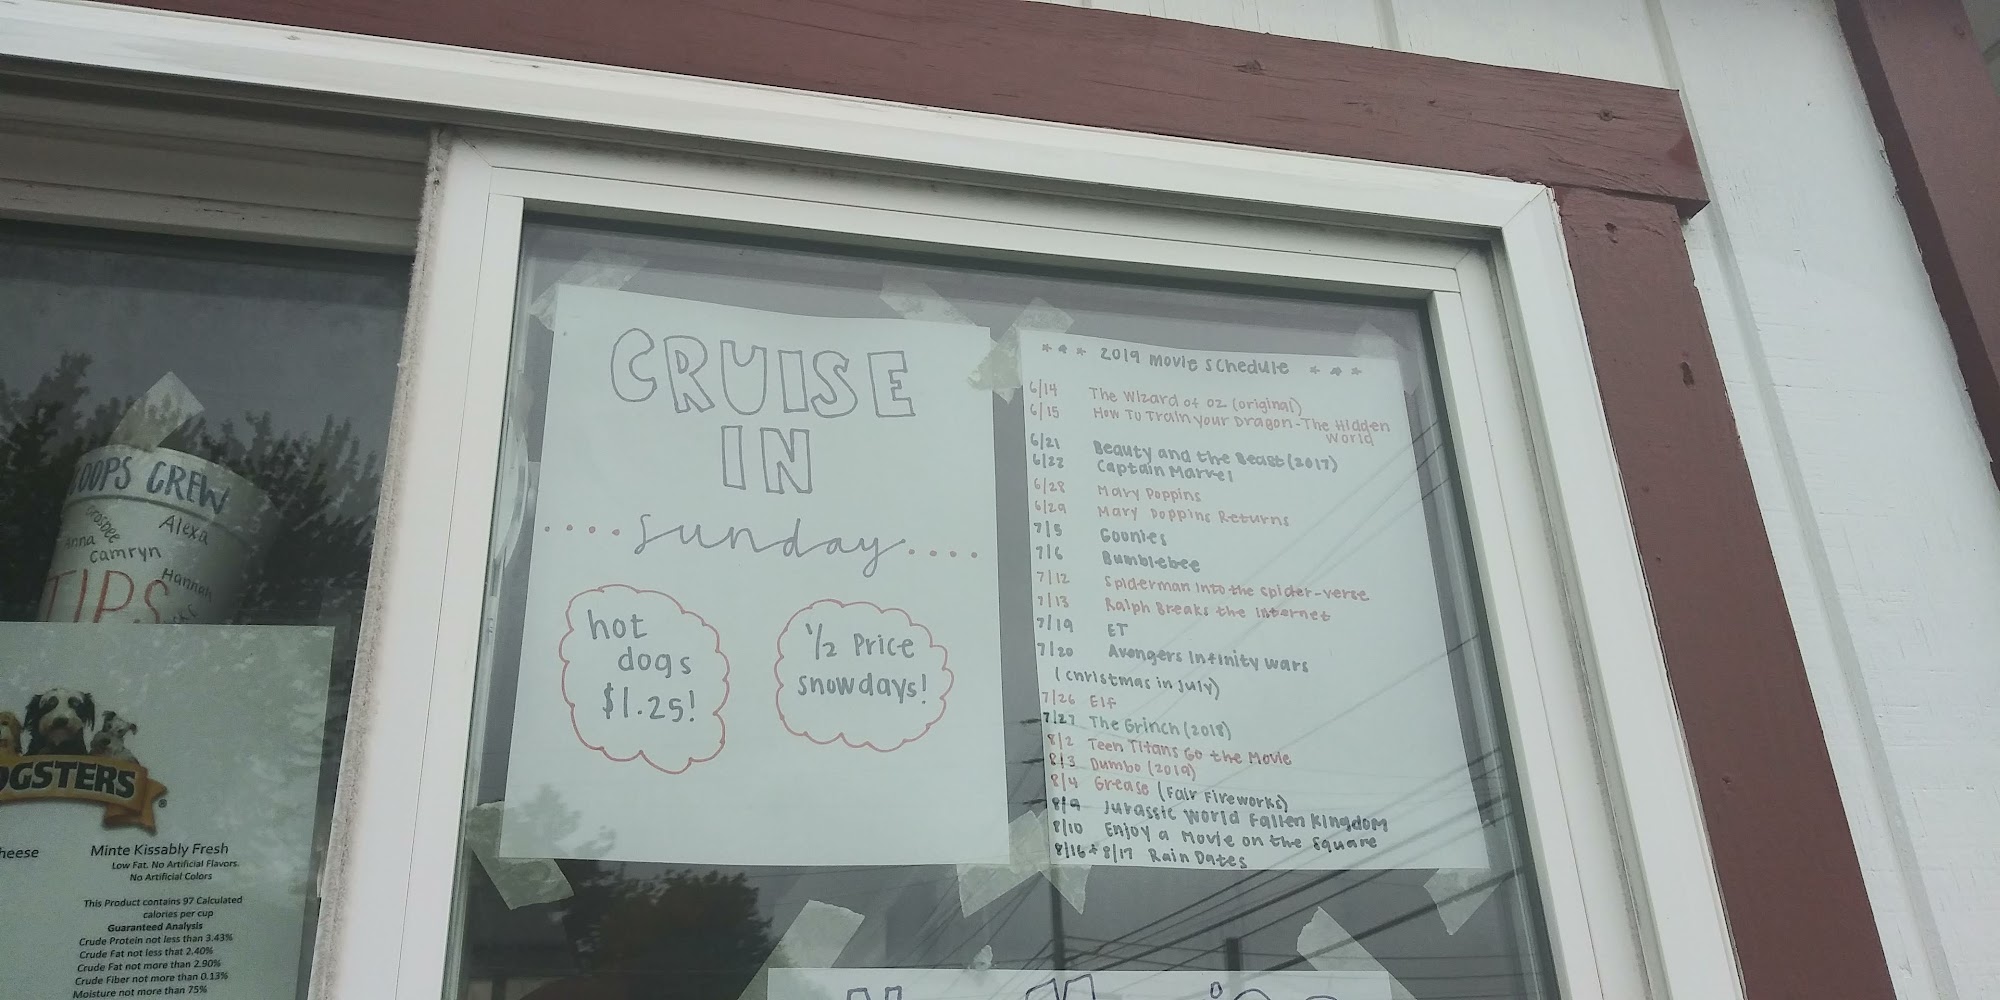 CRUISE
IN
....sunday....
hot
dogs
$1.25!
1/2 Price
snowdays!
*** 2019 movie schedule ***
6/14 The Wizard of Oz (original)
6/15 How To Train your Dragon - The Hidden
World
6/21 Beauty and the Beast (2017)
6/22 Captain Marvel
6/28 Mary Poppins
6/29 Mary Poppins Returns
7/5 Goonies
7/6 Bumblebee
7/12 Spiderman Into the spider-verse
7/13 Ralph Breaks the Internet
7/19 ET
7/20 Avengers Infinity wars
(christmas in july)
7/26 Elf
7/27 The Grinch (2018)
8/2 Teen Titans Go the Movie
8/3 Dumbo (2019)
8/4 Grease (Fair Fireworks)
8/9 Jurassic World Fallen Kingdom
8/10 Enjoy a Movie on the Square
8/16 + 8/17 Rain Dates
OOPS CREW
Alexa
nna
camryn
Hannah
TIPS
OGSTERS®
heese
Minte Kissably Fresh
Low Fat. No Artificial Flavors.
No Artificial Colors
This Product contains 97 Calculated
calories per cup
Guaranteed Analysis
Crude Protein not less than 3.43%
Crude Fat not less that 2.40%
Crude Fat not more than 2.90%
Crude Fiber not more than 0.13%
Moisture not more than 75%